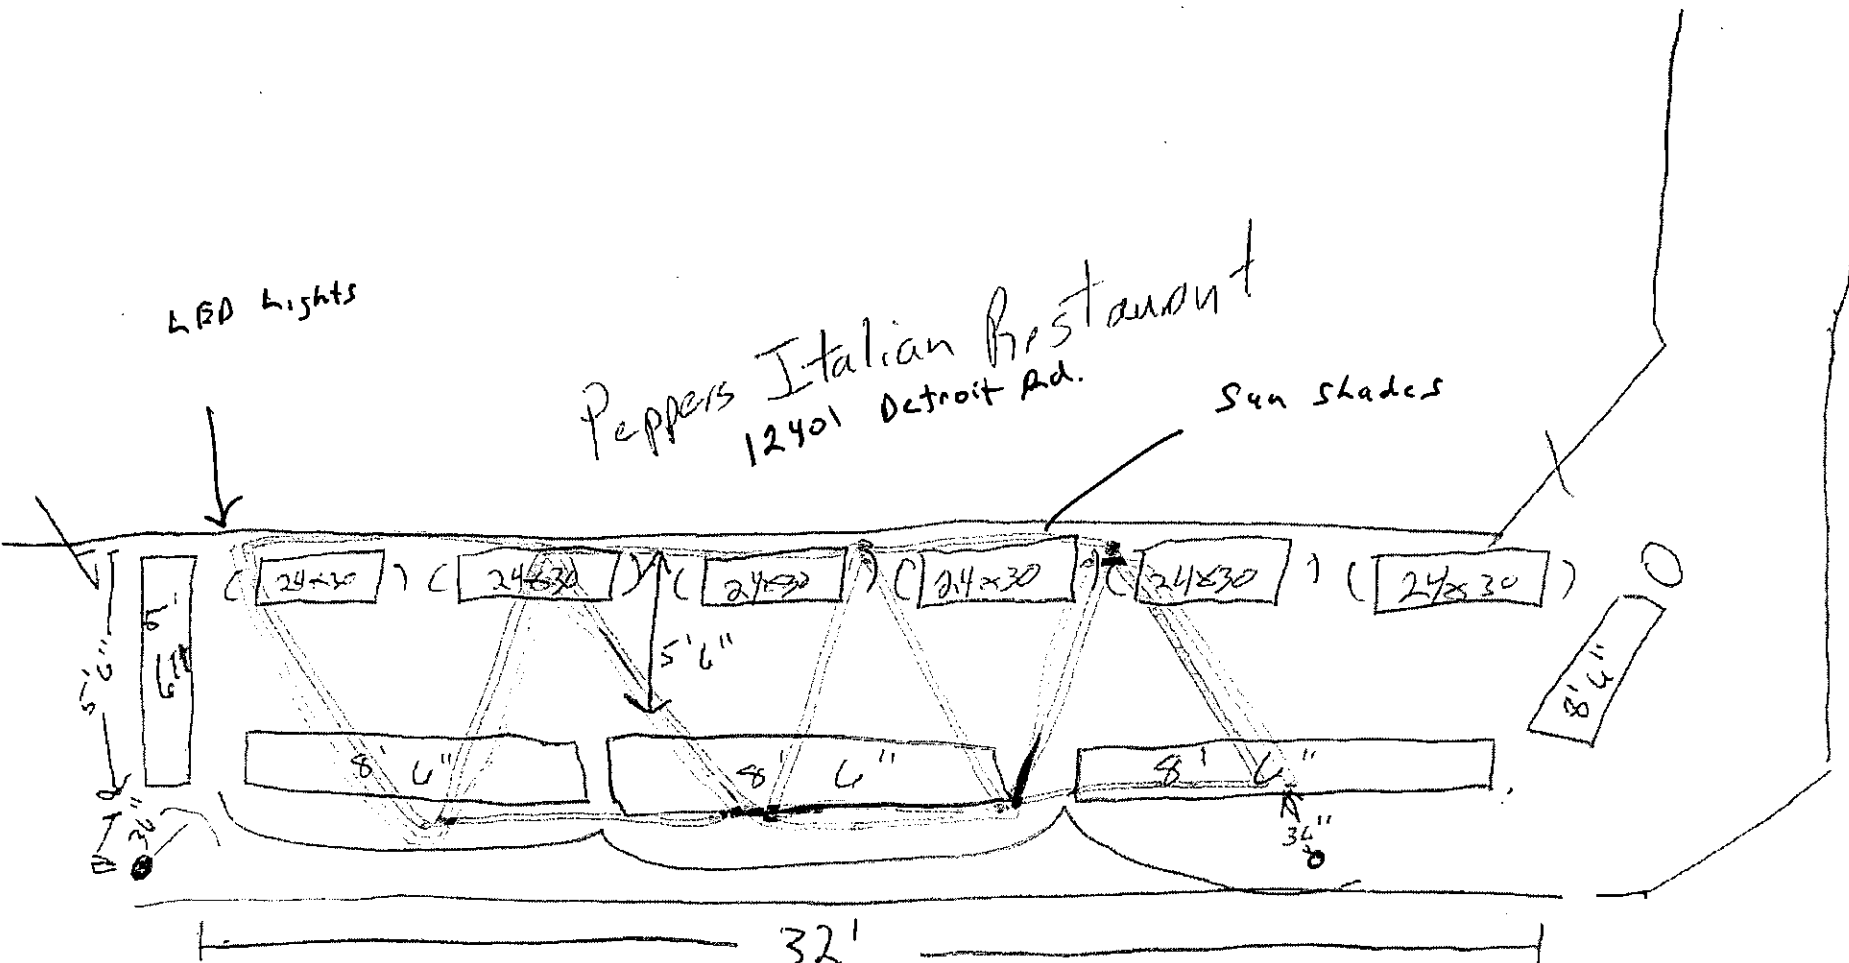 LED Lights
Peppers Italian Restaurant
12401 Detroit Rd.
Sun Shades
24x30
24x30
24x30
24x30
24x30
24x30
5'6"
5'6"
8'6"
8' 6"
8' 6"
8' 6"
36"
36"
32'